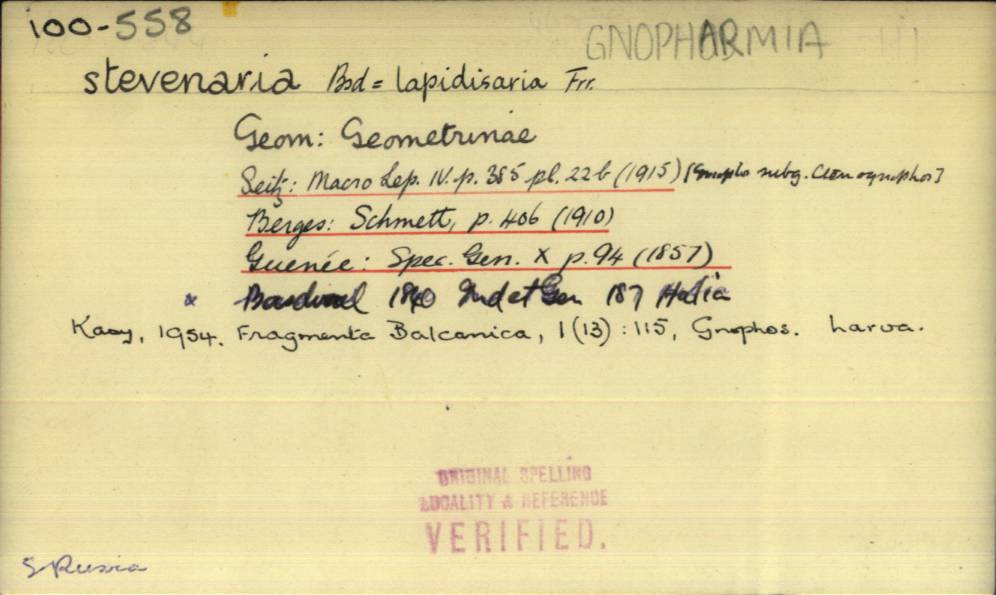 100-558
GNOPHARMIA
stevenaria Bsd = lapidisaria Frr.
Geom: Geometrinae
Seitz: Macro Lep. IV. p. 385 pl. 22b (1915) [Gnophos subg. Ctenognophos]
Berges: Schmett, p. 406 (1910)
Guenée: Spec. Gen. X p. 94 (1857)
x Boisduval 1840 Ind et Gen 187 Halia
1954. Fragmenta Balcanica, 1(13): 115, Gnophos. Larva.
ORIGINAL SPELLING
LOCALITY & REFERENCE
VERIFIED.
S Russia